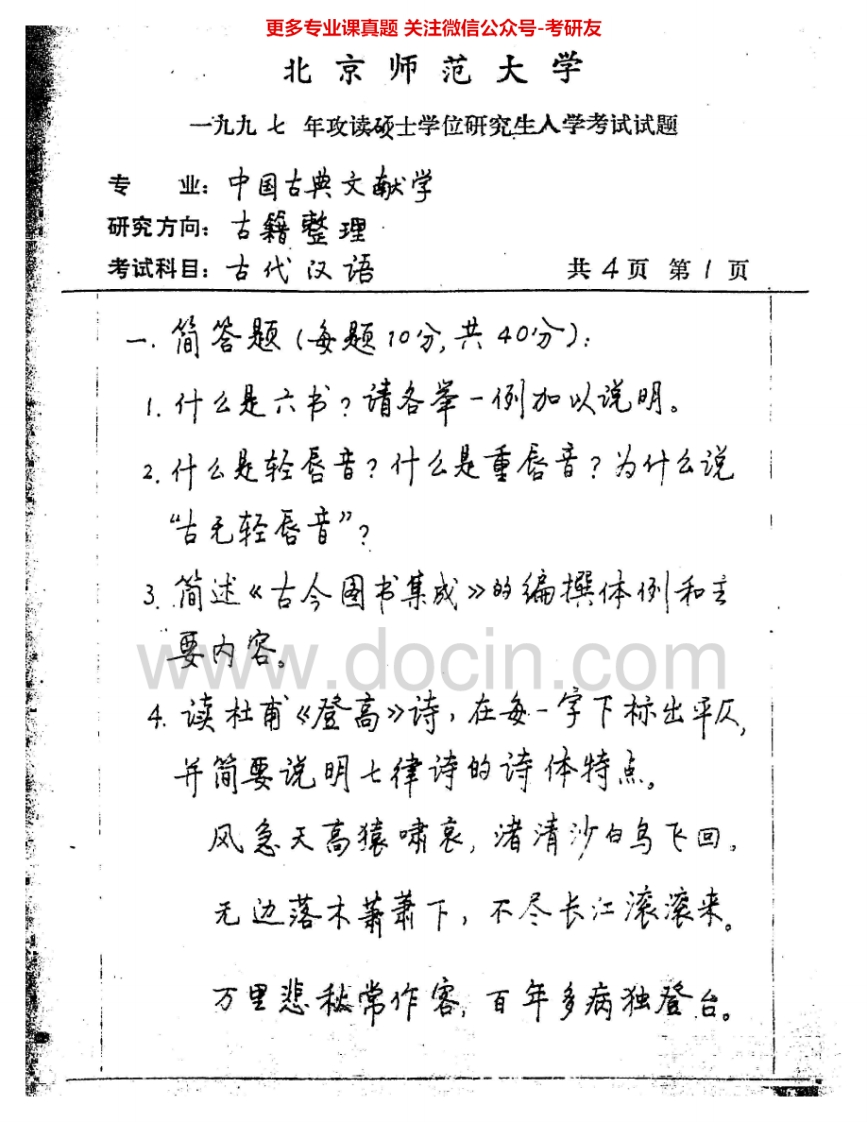 更多专业课真题 关注微信公众号-考研友
北京师范大学
一九九七 年攻读硕士学位研究生入学考试试题
专 业：中国古典文献学
研究方向：古籍整理
考试科目：古代汉语 共4页 第1页
一. 简答题（每题10分，共40分）：
1. 什么是六书？请各举一例加以说明。
2. 什么是轻唇音？什么是重唇音？为什么说
“古无轻唇音”？
3. 简述《古今图书集成》的编撰体例和主
要内容。
www.docin.com
4. 读杜甫《登高》诗，在每一字下标出平仄，
并简要说明七律诗的诗体特点。
风急天高猿啸哀，渚清沙白鸟飞回。
无边落木萧萧下，不尽长江滚滚来。
万里悲秋常作客，百年多病独登台。